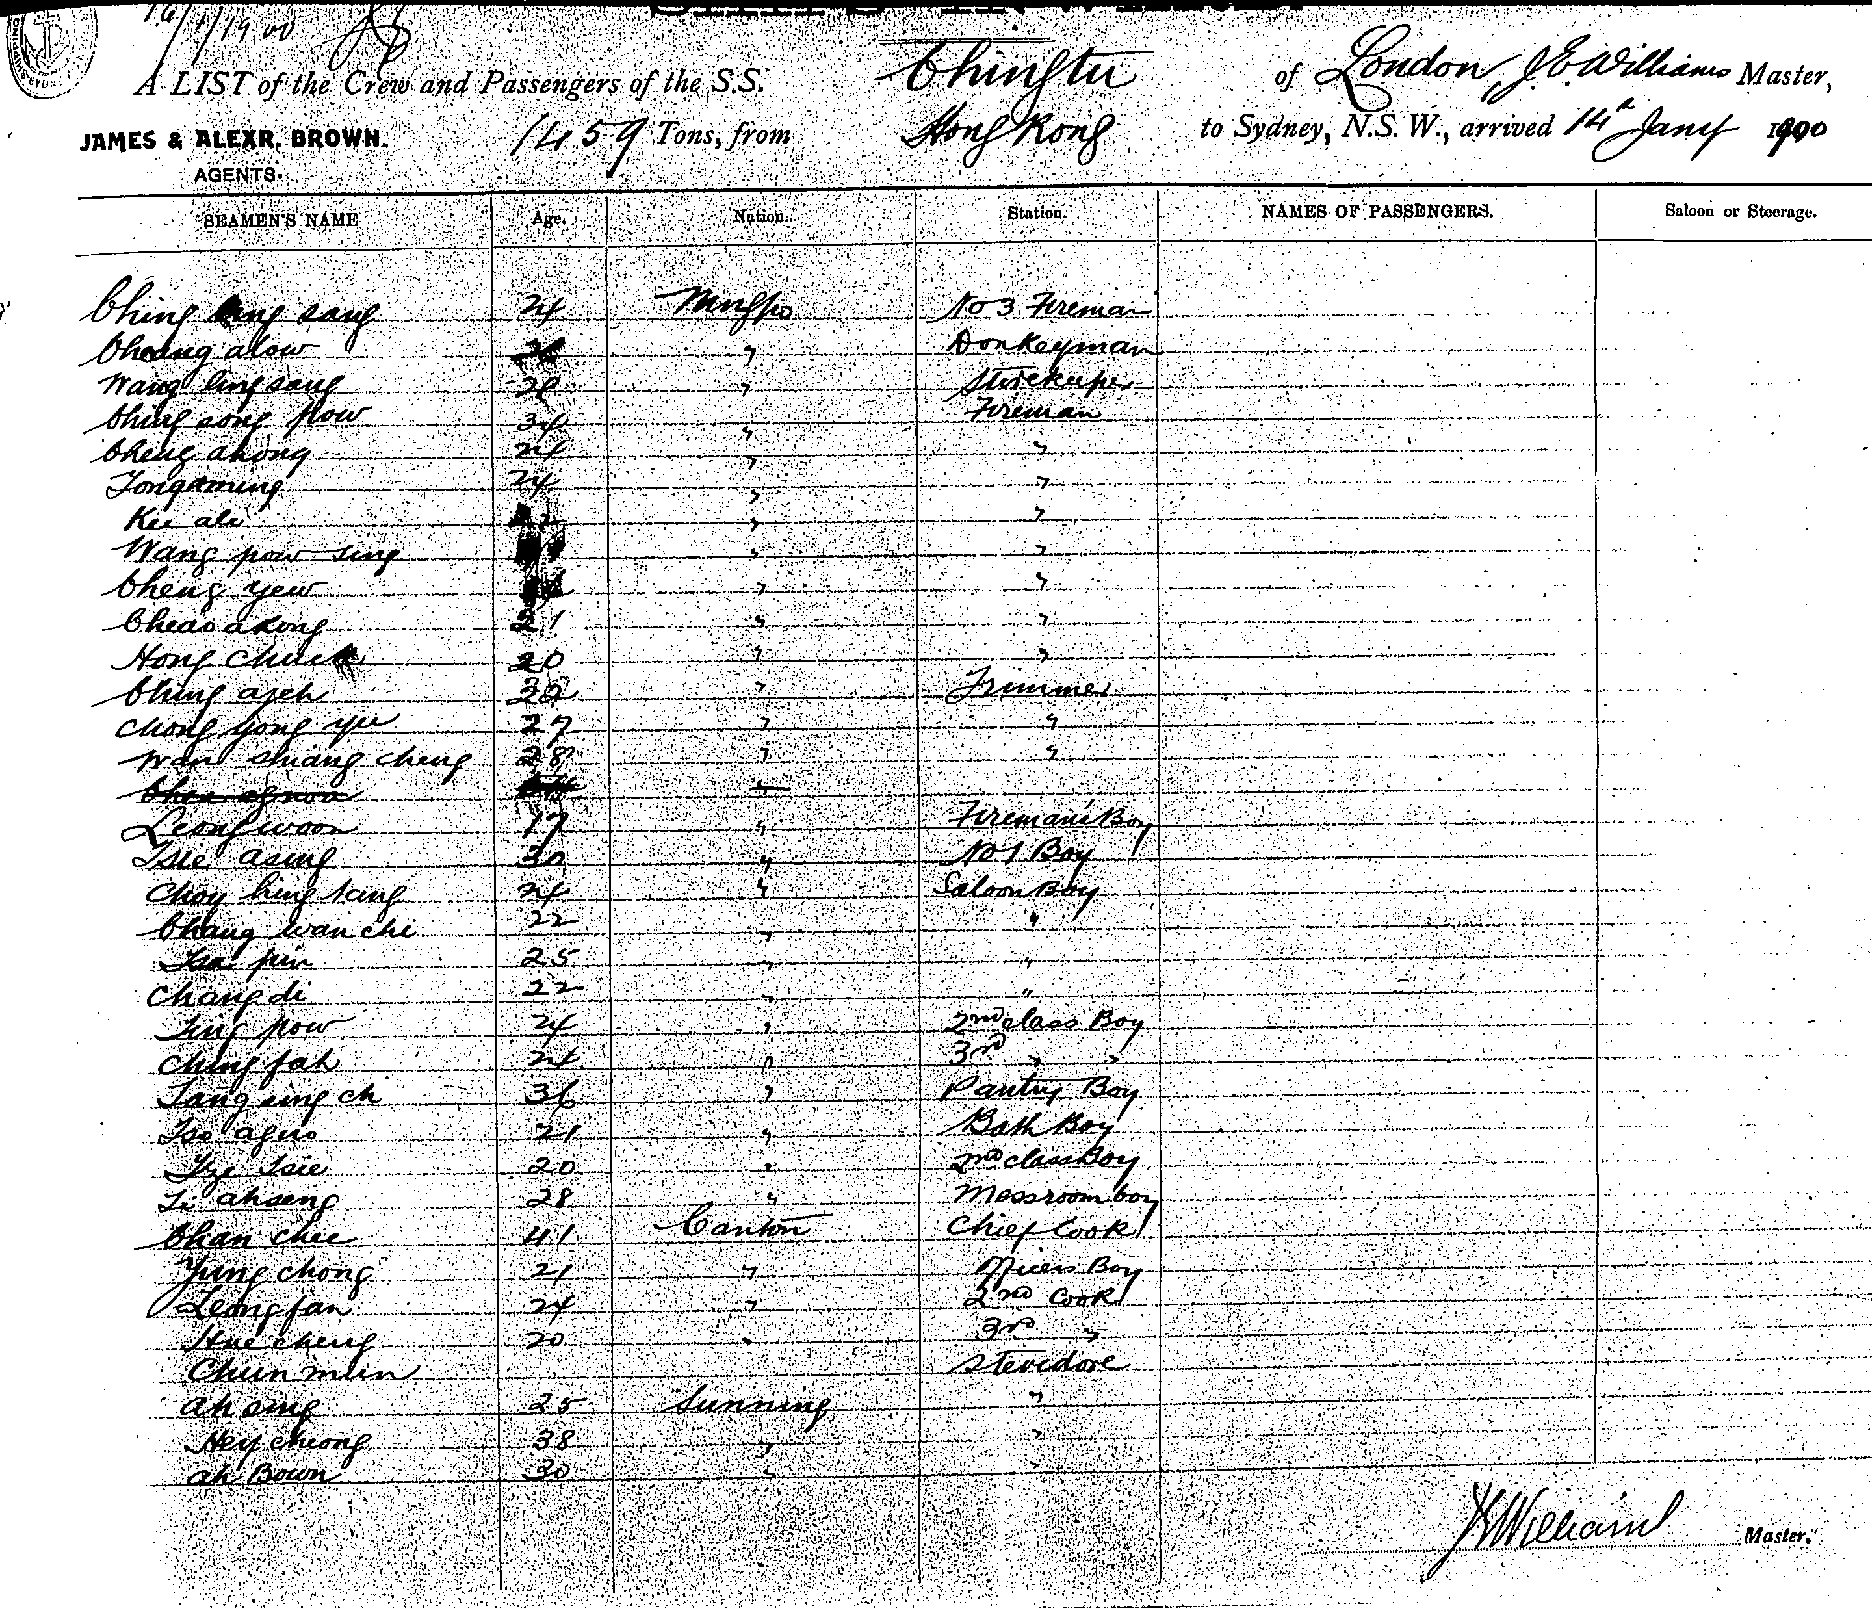 16/1/1900
A LIST of the Crew and Passengers of the S.S. Chingtu of London, J. E. Williams Master,
JAMES & ALEXR. BROWN. 1459 Tons, from Hong Kong to Sydney, N.S.W., arrived 14th Jany 1900
AGENTS.
SEAMEN'S NAME Age. Nation. Station. NAMES OF PASSENGERS. Saloon or Steerage.
Ching sang 24 Ningpo No 3 Fireman
Cheang alow " Donkeyman
Wang ling sang 28 " Storekeeper
Ching song pow 34 " Fireman
Cheng ahong 24 " "
Tong aming 24 " "
Kee ale " "
Wang pow sing " "
Cheng yew " "
Cheao akong 21 " "
Hong 20 " "
Ching ajeh 22 " Trimmer
Chong yong yee 27 " "
Wan shiang cheng 28 " "
Leong woon 17 " Fireman's Boy
Tsie asing 30 " No 1 Boy
Choy hing sang 24 " Saloon Boy
Chang wan che 22 " "
Tsa pin 25 " "
Chang di 22 " "
Ting pow 24 " 2nd class Boy
Ching fah 24 " 3rd " "
Tang sing ch 36 " Pantry Boy
Tso 21 " Bath Boy
Tze Tsie 20 " 2nd class Boy
Li ahseng 28 " Messroom boy
Chan chee 41 Canton Chief Cook
Yung chong 21 " Officers Boy
Leong fan 24 " 2nd Cook
Hue cheng 20 " 3rd "
Chun mun Stevedore
Ah sing 25 Sunning "
Hey cheong 38 " "
Ah Bown 30 " "
J E Williams Master.